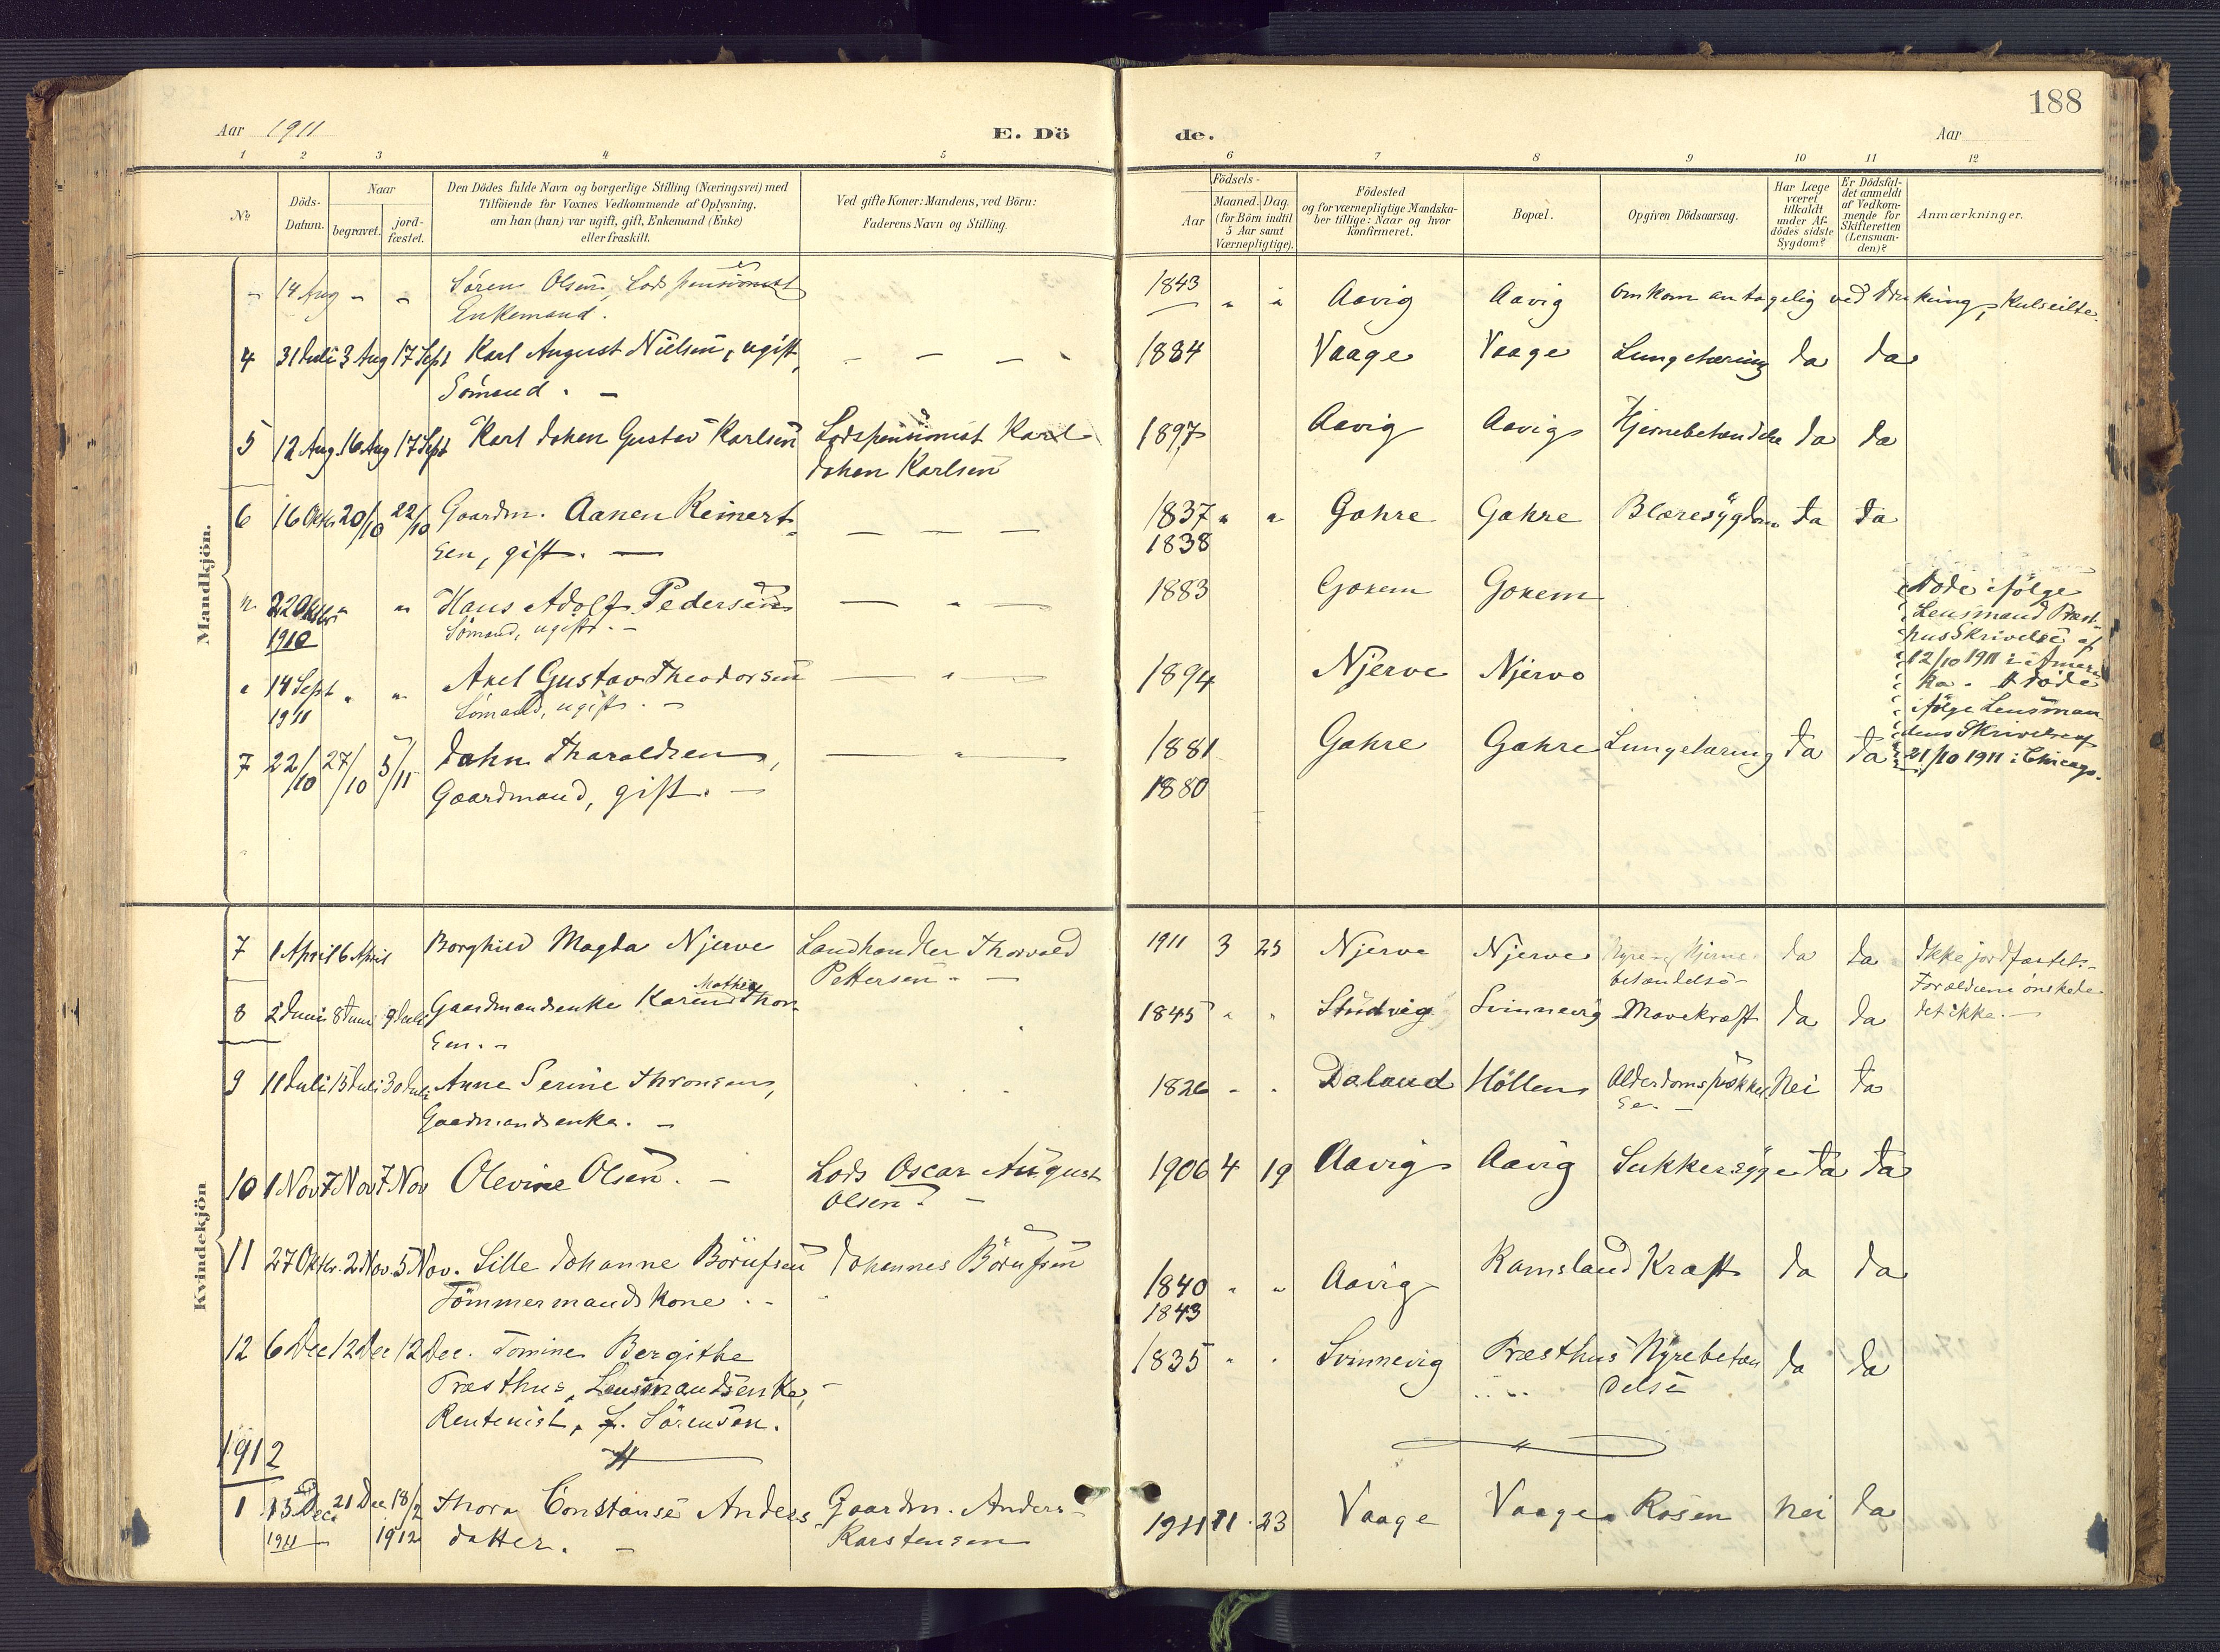 188
Aar 1911 E. Dö de. Aar
1 2 3 4 5 6 7 8 9 10 11 12
No
Döds-
Datum.
Naar
begravet.
jord-
fæstet.
Den Dödes fulde Navn og borgerlige Stilling (Næringsvei) med
Tilföiende for Voxnes Vedkommende af Oplysning,
om han (hun) var ugift, gift, Enkemand (Enke)
eller fraskilt.
Ved gifte Koner: Mandens, ved Börn:
Faderens Navn og Stilling.
Födsels-
Aar
Maaned. Dag.
(for Börn indtil
5 Aar samt
Værnepligtige).
Födested
og for værnepligtige Mandska-
ber tillige: Naar og hvor
konfirmeret.
Bopæl.
Opgiven Dödsaarsag.
Har Læge
været
tilkaldt
under Af-
dödes sidste
Sygdom?
Er Dödsfal-
det anmeldt
af Vedkom-
mende for
Skifteretten
(Lensman-
den)?
Anmærkninger.
Mandkjön.
" 14 Aug " " Sören Olsen, Lodspensionist 1843 " " Aavig Aavig Omkom antagelig ved drukning, Kulseilte.
Enkemand.
4 31 Juli 3 Aug 17 Sept Karl August Nielsen, ugift, 1884 Vaage Vaage Lungetæring Ja Ja
Sömand. -
5 12 Aug. 16 Aug 17 Sept Karl Johan Gustav Karlsen Lodspensionist Karl 1897 Aavig Aavig Hjernebetændelse Ja Ja
Johan Karlsen
6 16 Oktbr 20/10 22/10 Gaardm. Aanen Reinert- 1837 " " Gahre Gahre Blæresygdom Ja Ja
sen, gift. - 1838
" 22 Oktbr " " Hans Adolf Pedersen 1883 Goxem Goxem
1910 Sömand, ugift. -
Döde ifölge
Lensmand Præst-
hus Skrivelse af
12/10 1911 i Ameri
ka.
" 14 Sept " " Axel Gustav Theodorsen 1894 Njerve Njerve
1911 Sömand, ugift. -
Döde
ifölge Lensman
dens Skrivelse af
21/10 1911 i Chicago.
7 22/10 27/10 5/11 John Tharaldsen, 1881 Gahre Gahre Lungetæring Ja Ja
Gaardmand, gift. - 1880
Kvindekjön
7 1 April 6 April Borghild Magda Njerve Landhandler Thorvald 1911 3 25 Njerve Njerve Nyre- og Hjerne- Ja Ja Ikke jordfæstet.-
Pettersen. - betændelse - Forældrene önskede
det ikke. -
8 2 Juni 8 Juni 9 Juli Gaardmandsenke Karen Mathie Thor- 1845 " " Studvig Svinnevig Mavekræft Ja Ja
sen. -
9 11 Juli 15 Juli 30 Juli Anne Serine Thronsen, 1826 - - Daland Höllen Alderdomssvækkel Nei Ja
Gaardmandsenke. - se. -
10 1 Nov 7 Nov 7 Nov Olevine Olsen. - Lods Oscar August 1906 4 19 Aavig Aavig Sukkersyge Ja Ja
Olsen. -
11 27 Oktbr. 2 Nov. 5 Nov. Sille Johanne Börufsen Johannes Börufsen 1840 " " Aavig Ramsland Kræft Ja Ja
Tömmermandskone. - 1843
12 6 Dec 12 Dec 12 Dec. Tomine Bergithe 1835 " " Svinnevig Præsthus Nyrebetæn Ja Ja
Præsthus, Lensmandsenke, - delse
Rentenist, f. Sörensen.
1912
1 13 Dec. 21 Dec 18/2 Thora Constanse Anders Gaardm. Anders 1911 11 23 Vaage Vaage Rosen Nei Ja
1911 1912 datter. - Karstensen